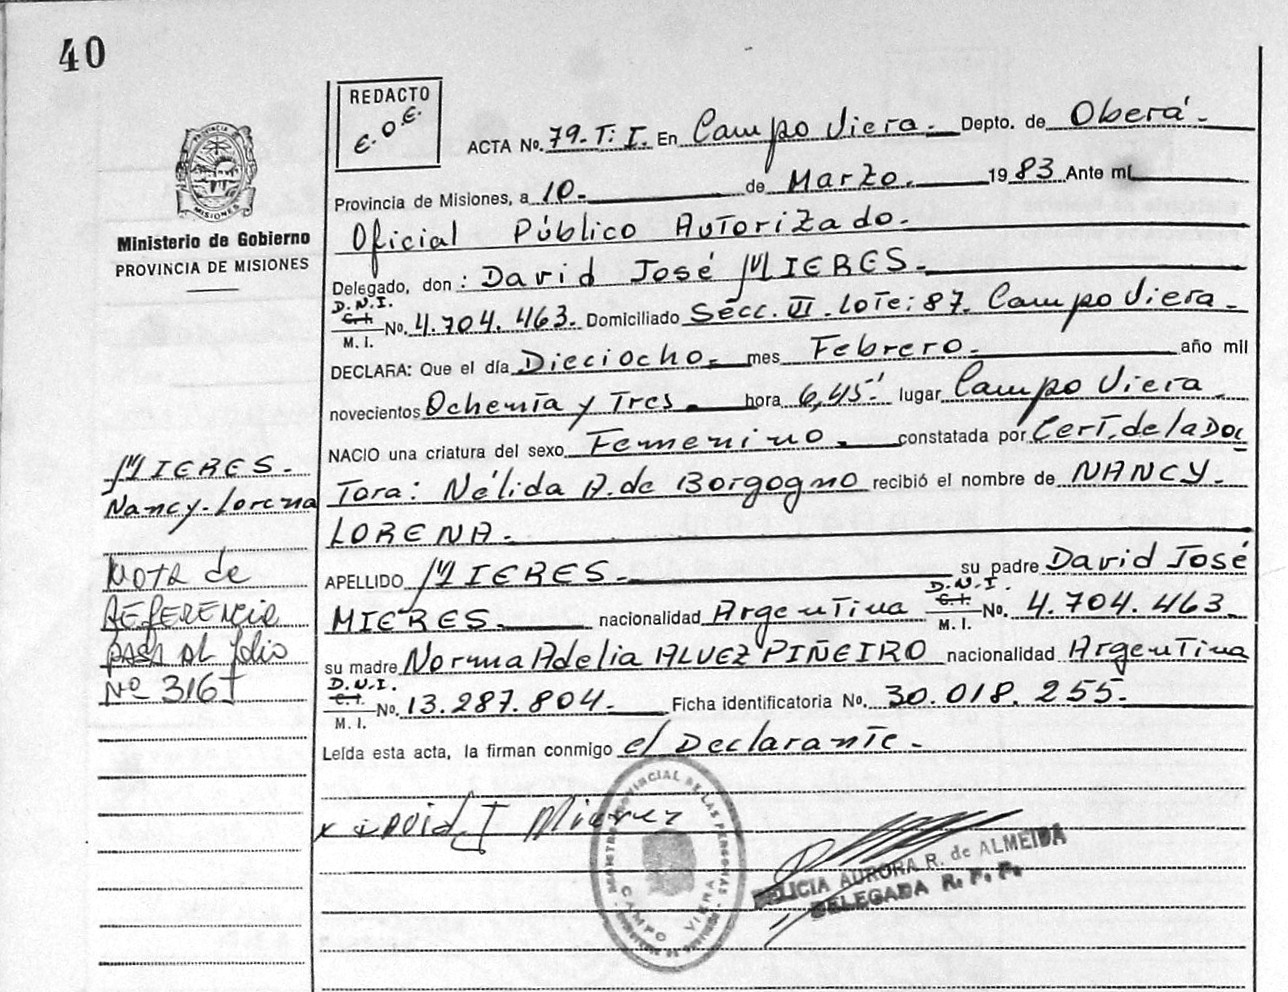 40
REDACTO
E. O. E.
ACTA No. 79. T: I. En Campo Viera. Depto. de Oberá.
PROVINCIA DE
MISIONES
Ministerio de Gobierno
PROVINCIA DE MISIONES
Provincia de Misiones, a 10. de Marzo. 1983 Ante mí
Oficial Público Autorizado.
Delegado, don: David José MIERES.
D.N.I.
C.I.
M. I.
No. 4.704.463. Domiciliado Secc. VI. Lote: 87. Campo Viera.
DECLARA: Que el día Dieciocho. mes Febrero. año mil
novecientos Ochenta y Tres. hora 6,45' lugar Campo Viera.
NACIO una criatura del sexo Femenino. constatada por Cert. de la Doc
tora: Nélida A. de Borgogno recibió el nombre de NANCY.
LORENA.
APELLIDO MIERES. su padre David José
MIERES. nacionalidad Argentina D.N.I. C.I. M. I. No. 4.704.463.
su madre Norma Adelia ALVEZ PIÑEIRO nacionalidad Argentina
D.N.I.
C.I.
M. I.
No. 13.287.804. Ficha identificatoria No. 30.018.255.
Leída esta acta, la firman conmigo el Declarante.
MIERES.
Nancy-Lorena
NOTA de
REFERENCIA
PASA AL folio
Nº 316 T
x David J Mieres
REGISTRO PROVINCIAL DE LAS PERSONAS
CAMPO VIERA
FELICIA AURORA R. de ALMEIDA
DELEGADA R. P. P.